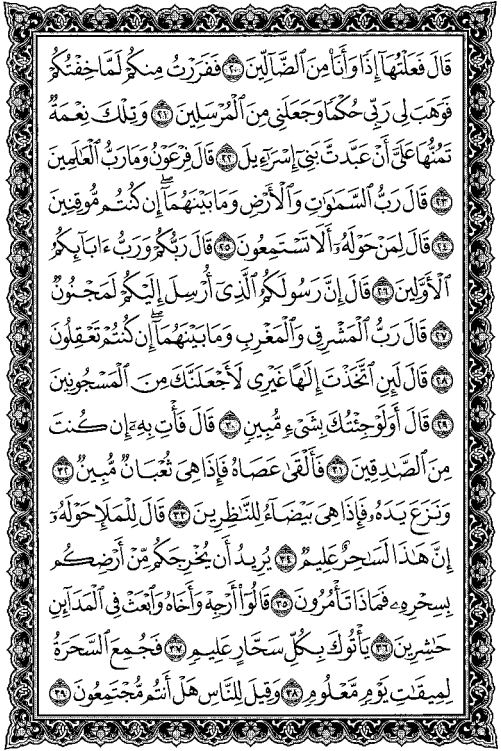 قَالَ فَعَلْتُهَآ إِذًا وَأَنَا۠ مِنَ ٱلضَّآلِّينَ ٢٠ فَفَرَرْتُ مِنكُمْ لَمَّا خِفْتُكُمْ
فَوَهَبَ لِى رَبِّى حُكْمًا وَجَعَلَنِى مِنَ ٱلْمُرْسَلِينَ ٢١ وَتِلْكَ نِعْمَةٌ
تَمُنُّهَا عَلَىَّ أَنْ عَبَّدتَّ بَنِىٓ إِسْرَٰٓءِيلَ ٢٢ قَالَ فِرْعَوْنُ وَمَا رَبُّ ٱلْعَٰلَمِينَ
٢٣ قَالَ رَبُّ ٱلسَّمَٰوَٰتِ وَٱلْأَرْضِ وَمَا بَيْنَهُمَآ ۖ إِن كُنتُم مُّوقِنِينَ
٢٤ قَالَ لِمَنْ حَوْلَهُۥٓ أَلَا تَسْتَمِعُونَ ٢٥ قَالَ رَبُّكُمْ وَرَبُّ ءَابَآئِكُمُ
ٱلْأَوَّلِينَ ٢٦ قَالَ إِنَّ رَسُولَكُمُ ٱلَّذِىٓ أُرْسِلَ إِلَيْكُمْ لَمَجْنُونٌ
٢٧ قَالَ رَبُّ ٱلْمَشْرِقِ وَٱلْمَغْرِبِ وَمَا بَيْنَهُمَآ ۖ إِن كُنتُمْ تَعْقِلُونَ
٢٨ قَالَ لَئِنِ ٱتَّخَذْتَ إِلَٰهًا غَيْرِى لَأَجْعَلَنَّكَ مِنَ ٱلْمَسْجُونِينَ
٢٩ قَالَ أَوَلَوْ جِئْتُكَ بِشَىْءٍ مُّبِينٍ ٣٠ قَالَ فَأْتِ بِهِۦٓ إِن كُنتَ
مِنَ ٱلصَّٰدِقِينَ ٣١ فَأَلْقَىٰ عَصَاهُ فَإِذَا هِىَ ثُعْبَانٌ مُّبِينٌ ٣٢
وَنَزَعَ يَدَهُۥ فَإِذَا هِىَ بَيْضَآءُ لِلنَّٰظِرِينَ ٣٣ قَالَ لِلْمَلَإِ حَوْلَهُۥٓ
إِنَّ هَٰذَا لَسَٰحِرٌ عَلِيمٌ ٣٤ يُرِيدُ أَن يُخْرِجَكُم مِّنْ أَرْضِكُم
بِسِحْرِهِۦ فَمَاذَا تَأْمُرُونَ ٣٥ قَالُوٓا۟ أَرْجِهْ وَأَخَاهُ وَٱبْعَثْ فِى ٱلْمَدَآئِنِ
حَٰشِرِينَ ٣٦ يَأْتُوكَ بِكُلِّ سَحَّارٍ عَلِيمٍ ٣٧ فَجُمِعَ ٱلسَّحَرَةُ
لِمِيقَٰتِ يَوْمٍ مَّعْلُومٍ ٣٨ وَقِيلَ لِلنَّاسِ هَلْ أَنتُم مُّجْتَمِعُونَ ٣٩